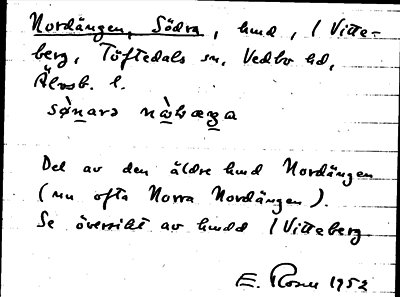 Nordängen, Södra, hmd, / Vitte-
berg, Töftedals sn, Vedbo hd,
Älvsb. l.
Del av den äldre hmd Nordängen
(nu ofta Norra Nordängen).
Se översikt av hmdd / Vitteberg
E. Rosen 1952